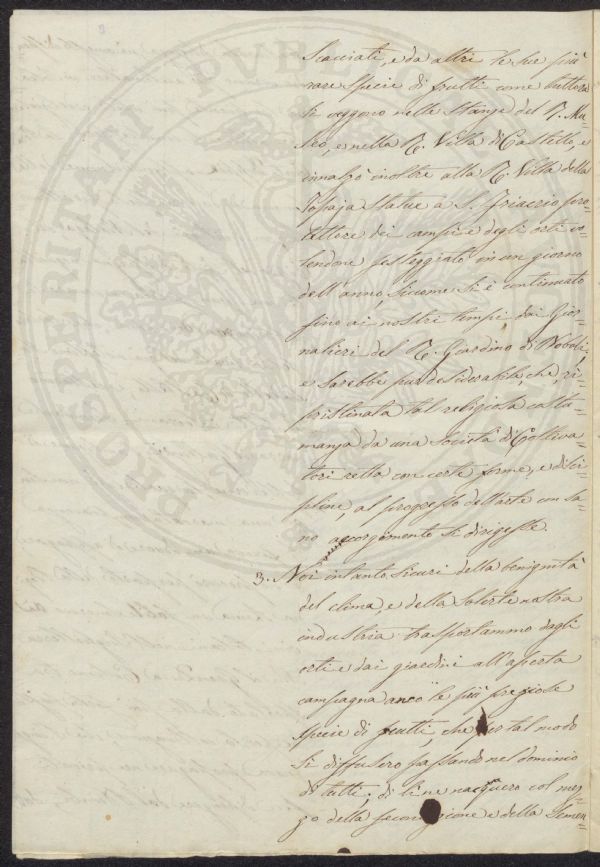 Scacciati, e da altri le sue più
rare specie di frutti come tuttora
si veggono nelle Stanze del R. Mu=
seo, e nella R. Villa di Castello, e
innalzò inoltre alla R. Villa della
Topaja Statue a S. Friacrio pro=
tettore dei campi e degli orti vo=
lendone festeggiato in un giorno
dell'anno, siccome si è continuato
fino ai nostri tempi dai Gior=
nalieri del R. Giardino di Boboli,
e sarebbe pur desiderabile, che, ri=
pristinata tal religiosa costu=
manza da una società di Coltiva=
tori retta con certe forme, e disci=
pline, al progresso dell'arte con sa=
no accorgimento si dirigesse.
3. Noi intanto sicuri della benignità
del clima, e della solerte nostra
industria trasportammo dagli
orti e dai giardini all'aperta
campagna anco le più pregiose
specie di frutti, che per tal modo
si diffusero passando nel dominio
di tutti; di lì ne nacquero col mez=
zo della fecondazione e della Semen=
PROSPERITATI PVBLICAE